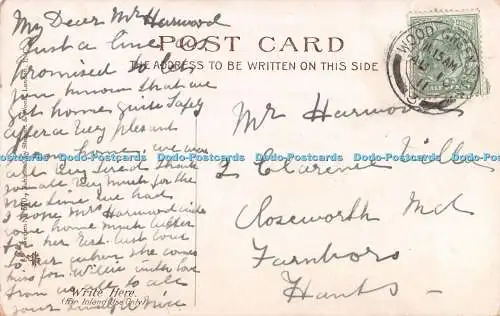 My Dear Mr Harwood
Just a line as
promised to let
you know that we
got home quite safely
after a very pleasant
home, we were
all very tired thank
you all very much for the
nice time we had
I hope Mrs Harwood will
come home much better
for her rest. best love
to her when she comes
kiss for Willie with love
from us all to all
your
POST CARD
THE ADDRESS TO BE WRITTEN ON THIS SIDE
WOOD GREEN
11.15 AM
11
Mr Harwood
2 Clarence Villa
Closeworth Rd
Farnboro
Hants
Write Here.
(For Inland Use Only)
Dodo-Postcards Dodo-Postcards Dodo-Postcards Dodo-Postcards Dodo-Postcards Dodo-Postcards